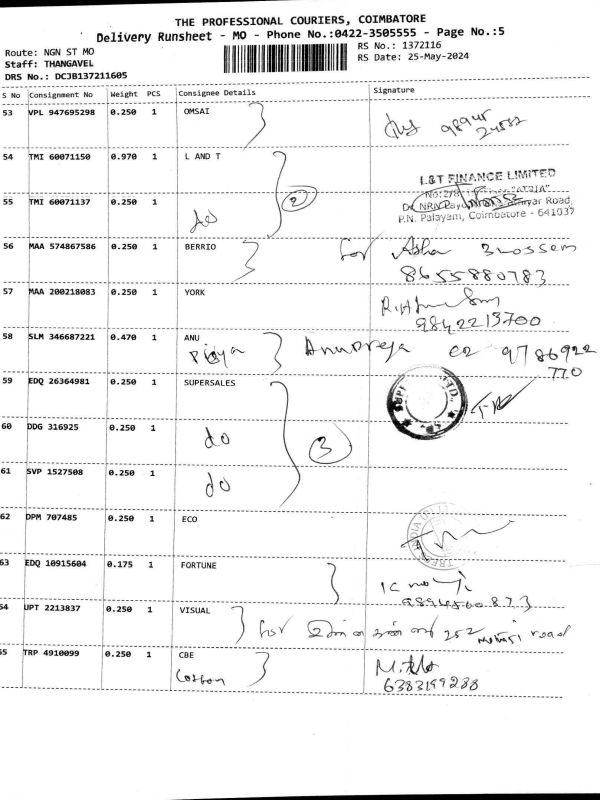 THE PROFESSIONAL COURIERS, COIMBATORE
Delivery Runsheet - MO - Phone No.:0422-3505555 - Page No.:5
Route: NGN ST MO
Staff: THANGAVEL
DRS No.: DCJB137211605
RS No.: 1372116
RS Date: 25-May-2024
S No Consignment No Weight PCS Consignee Details Signature
53 VPL 947695298 0.250 1 OMSAI
98945
54 TMI 60071150 0.970 1 L AND T
L&T FINANCE LIMITED
2
55 TMI 60071137 0.250 1
do
P.N. Palayam, Coimbatore - 641037
56 MAA 574867586 0.250 1 BERRIO
for Asha
8655880783
57 MAA 200218083 0.250 1 YORK
9842213700
58 SLM 346687221 0.470 1 ANU
Anupreya 9786922
770
59 EDQ 26364981 0.250 1 SUPERSALES
60 DDG 316925 0.250 1
do 3
61 SVP 1527508 0.250 1
do
62 DPM 707485 0.250 1 ECO
63 EDQ 10915604 0.175 1 FORTUNE
64 UPT 2213837 0.250 1 VISUAL
for 252 road
65 TRP 4910099 0.250 1 CBE
6383199288